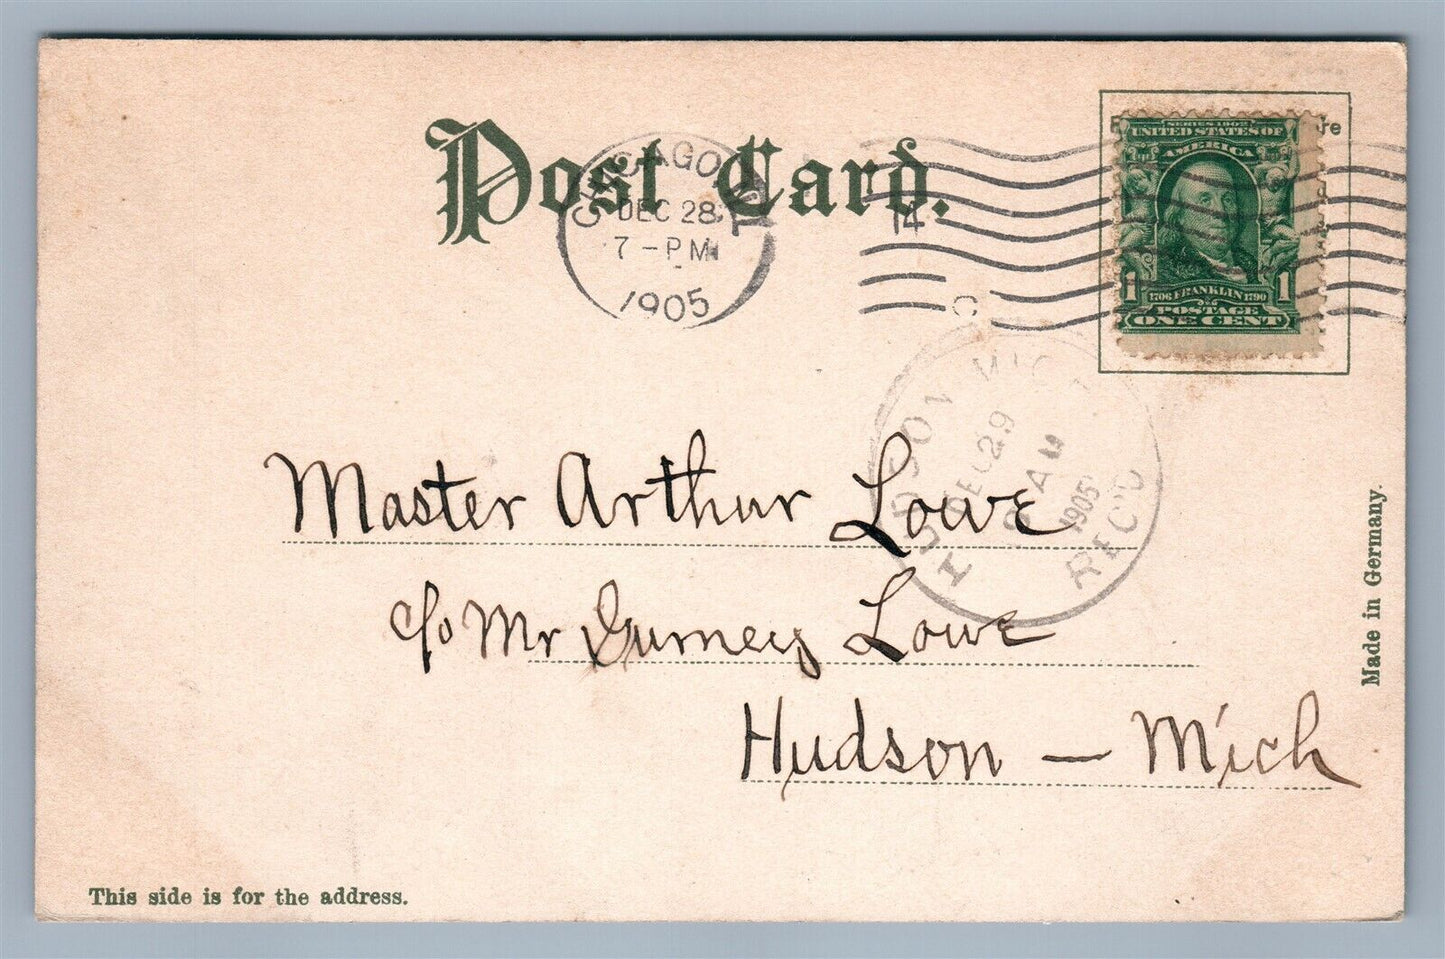 Post Card.
CHICAGO, ILL
DEC 28
7-PM
1905
14
C
re
SERIES 1902
UNITED STATES OF
AMERICA
1 1
1706 FRANKLIN 1790
POSTAGE
ONE CENT
HUDSON MICH
DEC 29
AM
1905
REC'D
Master Arthur Lowe
c/o Mr Gurney Lowe
Hudson — Mich
Made in Germany.
This side is for the address.